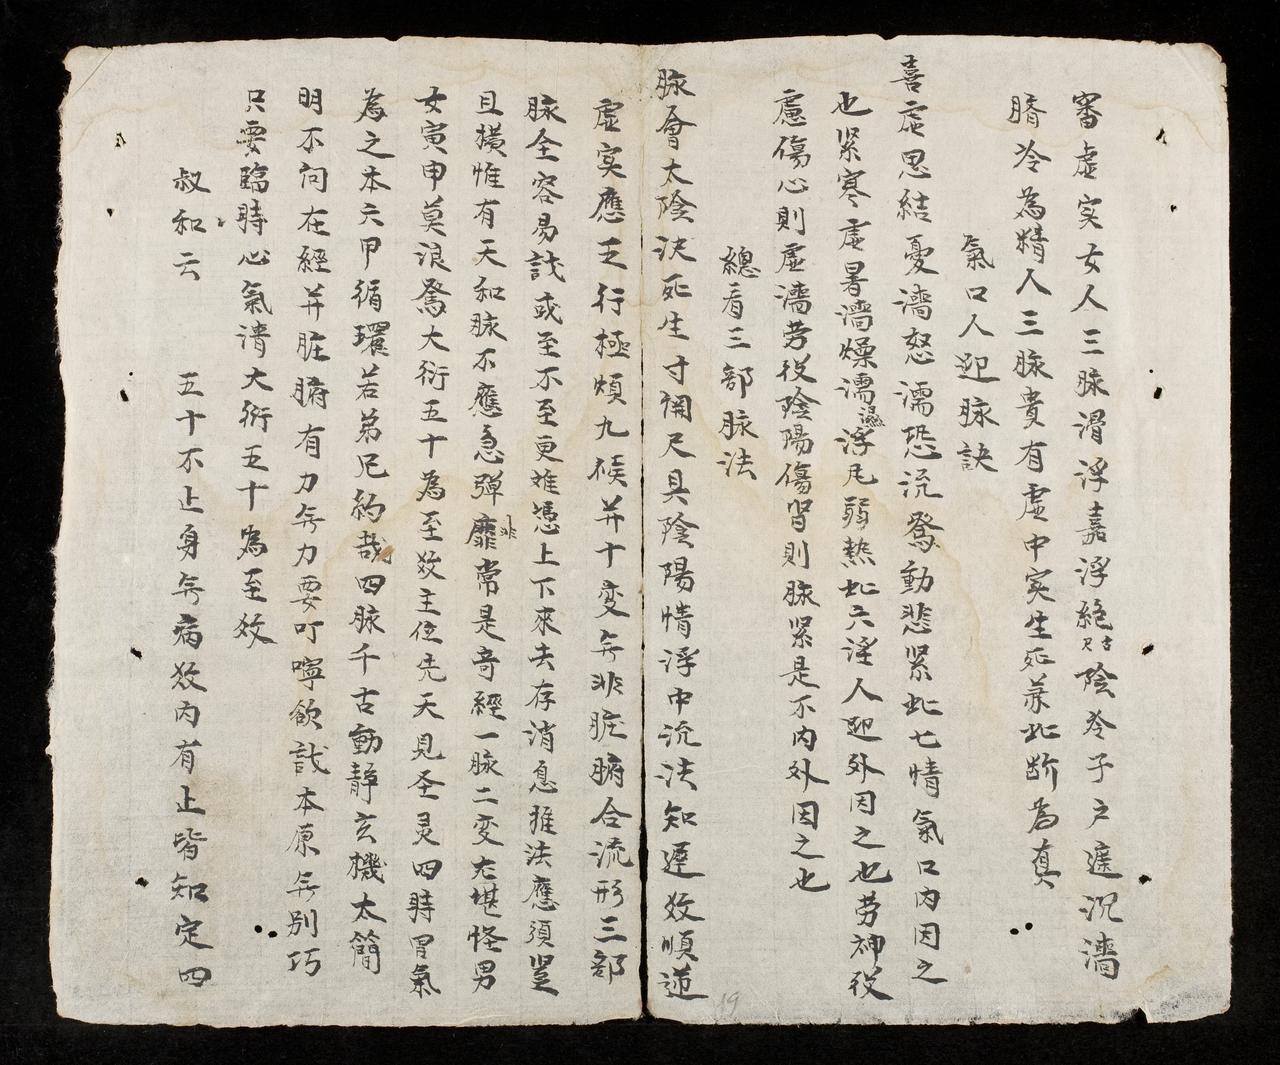 審虛实女人三脉滑浮嘉浮絕尺古陰冷子户遲沉濇
臍冷為精人三脉貴有虛中实生死萊此断為真
氣口人迎脉訣
喜虛思結憂濇怒濡恐沉發動悲紧此七情氣口内因之
也紧寒虛暑濇燥濡濕浮風弱热此六淫人迎外因之也劳神役
慮傷心則虛濇劳役陰陽傷腎則脉紧是不内外因之也
總看三部脉法
脉會太陰决死生寸関尺具陰陽情浮中沉法知遲数順逆
虛实應五行極頻九候并十变旡非脏腑合流形三部
脉全容易识或至不至更难憑上下來去存消息推法應須竖
且横惟有天和脉不應急弹靡非常是奇經一脉二变尤堪怪男
女寅申莫浪驚大衍五十為至数主位先天見圣灵四時胃氣
為之本六甲循環若弟兄約哉四脉千古動靜玄機太簡
明不问在經并脏腑有力旡力要叮嚀欲识本原旡别巧
只要臨時心氣清大衍五十為至数
叔和云　五十不止身旡病数内有止皆知定四
19